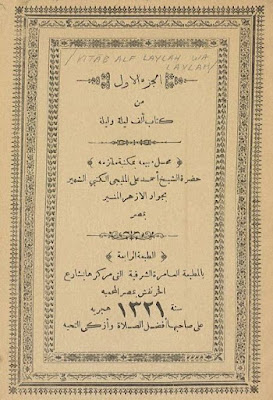 / KITAB ALF LAYLAH WA
LAYLAH /
الجزء الاول
من
كتاب ألف ليلة وليلة
محل مبيعه بمكتبة ملتزمه
حضرة الشيخ أحمد على المليجى الكتبى الشهير
بجوار الازهر المنير
بمصر
الطبعة الرابعة
بالمطبعة العامرة الشرفية التى مركزها بشارع
الخرنفش بمصر المحميه
سنة ١٣٢١ هجريه
على صاحبها أفضل الصلاة وأزكى التحيه